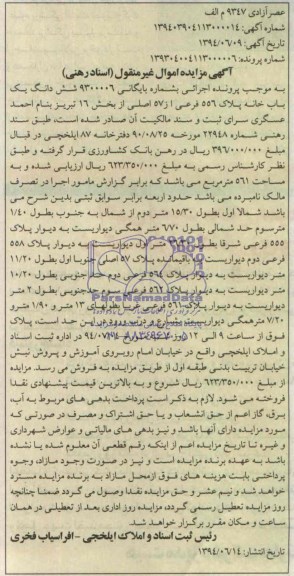 عصر آزادی ۹۳۴۷ م الف
شماره آگهی: ۱۳۹۴۰۳۹۰۴۱۱۳۰۰۰۰۱۴
تاریخ آگهی: ۱۳۹۴/۰۶/۰۹
شماره پرونده: ۱۳۹۳۰۴۰۰۴۱۱۳۰۰۰۰۰۶
آگهی مزایده اموال غیرمنقول (اسناد رهنی)
به موجب پرونده اجرائی بشماره بایگانی ۹۳۰۰۰۰۶ شش دانگ یک
باب خانه پلاک ۵۵۶ فرعی از ۵۷ اصلی از بخش ۱۶ تبریز بنام احمد
عسگری سرای ثبت و سند مالکیت آن صادر شده است، طبق سند
رهنی شماره ۲۲۹۴۸ مورخه ۹۰/۰۸/۲۵ دفترخانه ۸۷ ایلخچی در قبال
مبلغ ۳۹۶/۰۰۰/۰۰۰ ریال در رهن بانک کشاورزی قرار گرفته و طبق
نظر کارشناس رسمی به مبلغ ۶۲۳/۳۵۰/۰۰۰ ریال ارزیابی شده و به
مساحت ۵۶۱ مترمربع می باشد که برابر گزارش مامور اجرا در تصرف
مالک نامبرده می باشد حدود اربعه برابر سوابق ثبتی بدین شرح می
باشد شمالا اول بطول ۱۵/۳۰ متر دوم از شمال به جنوب بطول ۱/۴۰
مترسوم حد شمالی بطول ۶/۷۰ متر همگی دیواریست به دیوار پلاک
۵۵۵ فرعی شرقا بطول اول دیواریست به دیوار پلاک ۵۵۸
فرعی دوم دیواریست به باقیمانده پلاک ۵۷ اصلی جنوبا اول بطول ۱۱/۲۰
متر دیواریست به دیوار پلاک ۵۶۴ فرعی دوم جنوبی بطول ۱۰/۲۰
متر دیواریست به دیوار پلاک ۵۶۲ فرعی سوم جنوبی بطول ۲ متر
دیواریست به دیوار پلاک ۵۶۱ فرعی غربا بطولهای ۱۳ متر و ۱/۹۰ متر و
۷/۲۰ مترهمگی دیواریست بشارع و درب ورود در این حد است، پلاک
فوق از ساعت ۹ الی ۱۲ روز مورخ در اداره ثبت اسناد
و املاک ایلخچی واقع در خیابان امام روبروی آموزش و پرورش نبش
خیابان تربیت بدنی طبقه اول از طریق مزایده به فروش می رسد. مزایده
از مبلغ ۶۲۳/۳۵۰/۰۰۰ ریال شروع و به بالاترین قیمت پیشنهادی نقدا
فروخته می شود. لازم به ذکر است پرداخت بدهی های مربوط به آب،
برق، گاز اعم از حق انشعاب و یا حق اشتراک و مصرف در صورتی که
مورد مزایده دارای آنها باشد و نیز بدهی های مالیاتی و عوارض شهرداری
و غیره تا تاریخ مزایده اعم از اینکه رقم قطعی آن معلوم شده یا نشده
باشد به عهده برنده مزایده است و نیز در صورت وجود مازاد، وجوه
پرداختی بابت هزینه های فوق ازمحل مازاد به برنده مزایده مسترد
خواهد شد و نیم عشر و حق مزایده نقدا وصول می گردد ضمنا چنانچه
روز مزایده تعطیل رسمی گردد، مزایده روز اداری بعد از تعطیلی در همان
ساعت و مکان مقرر برگزار خواهد شد.
رئیس ثبت اسناد و املاک ایلخچی - افراسیاب فخری
تاریخ انتشار: ۱۳۹۴/۰۶/۱۴
ParsNamadData